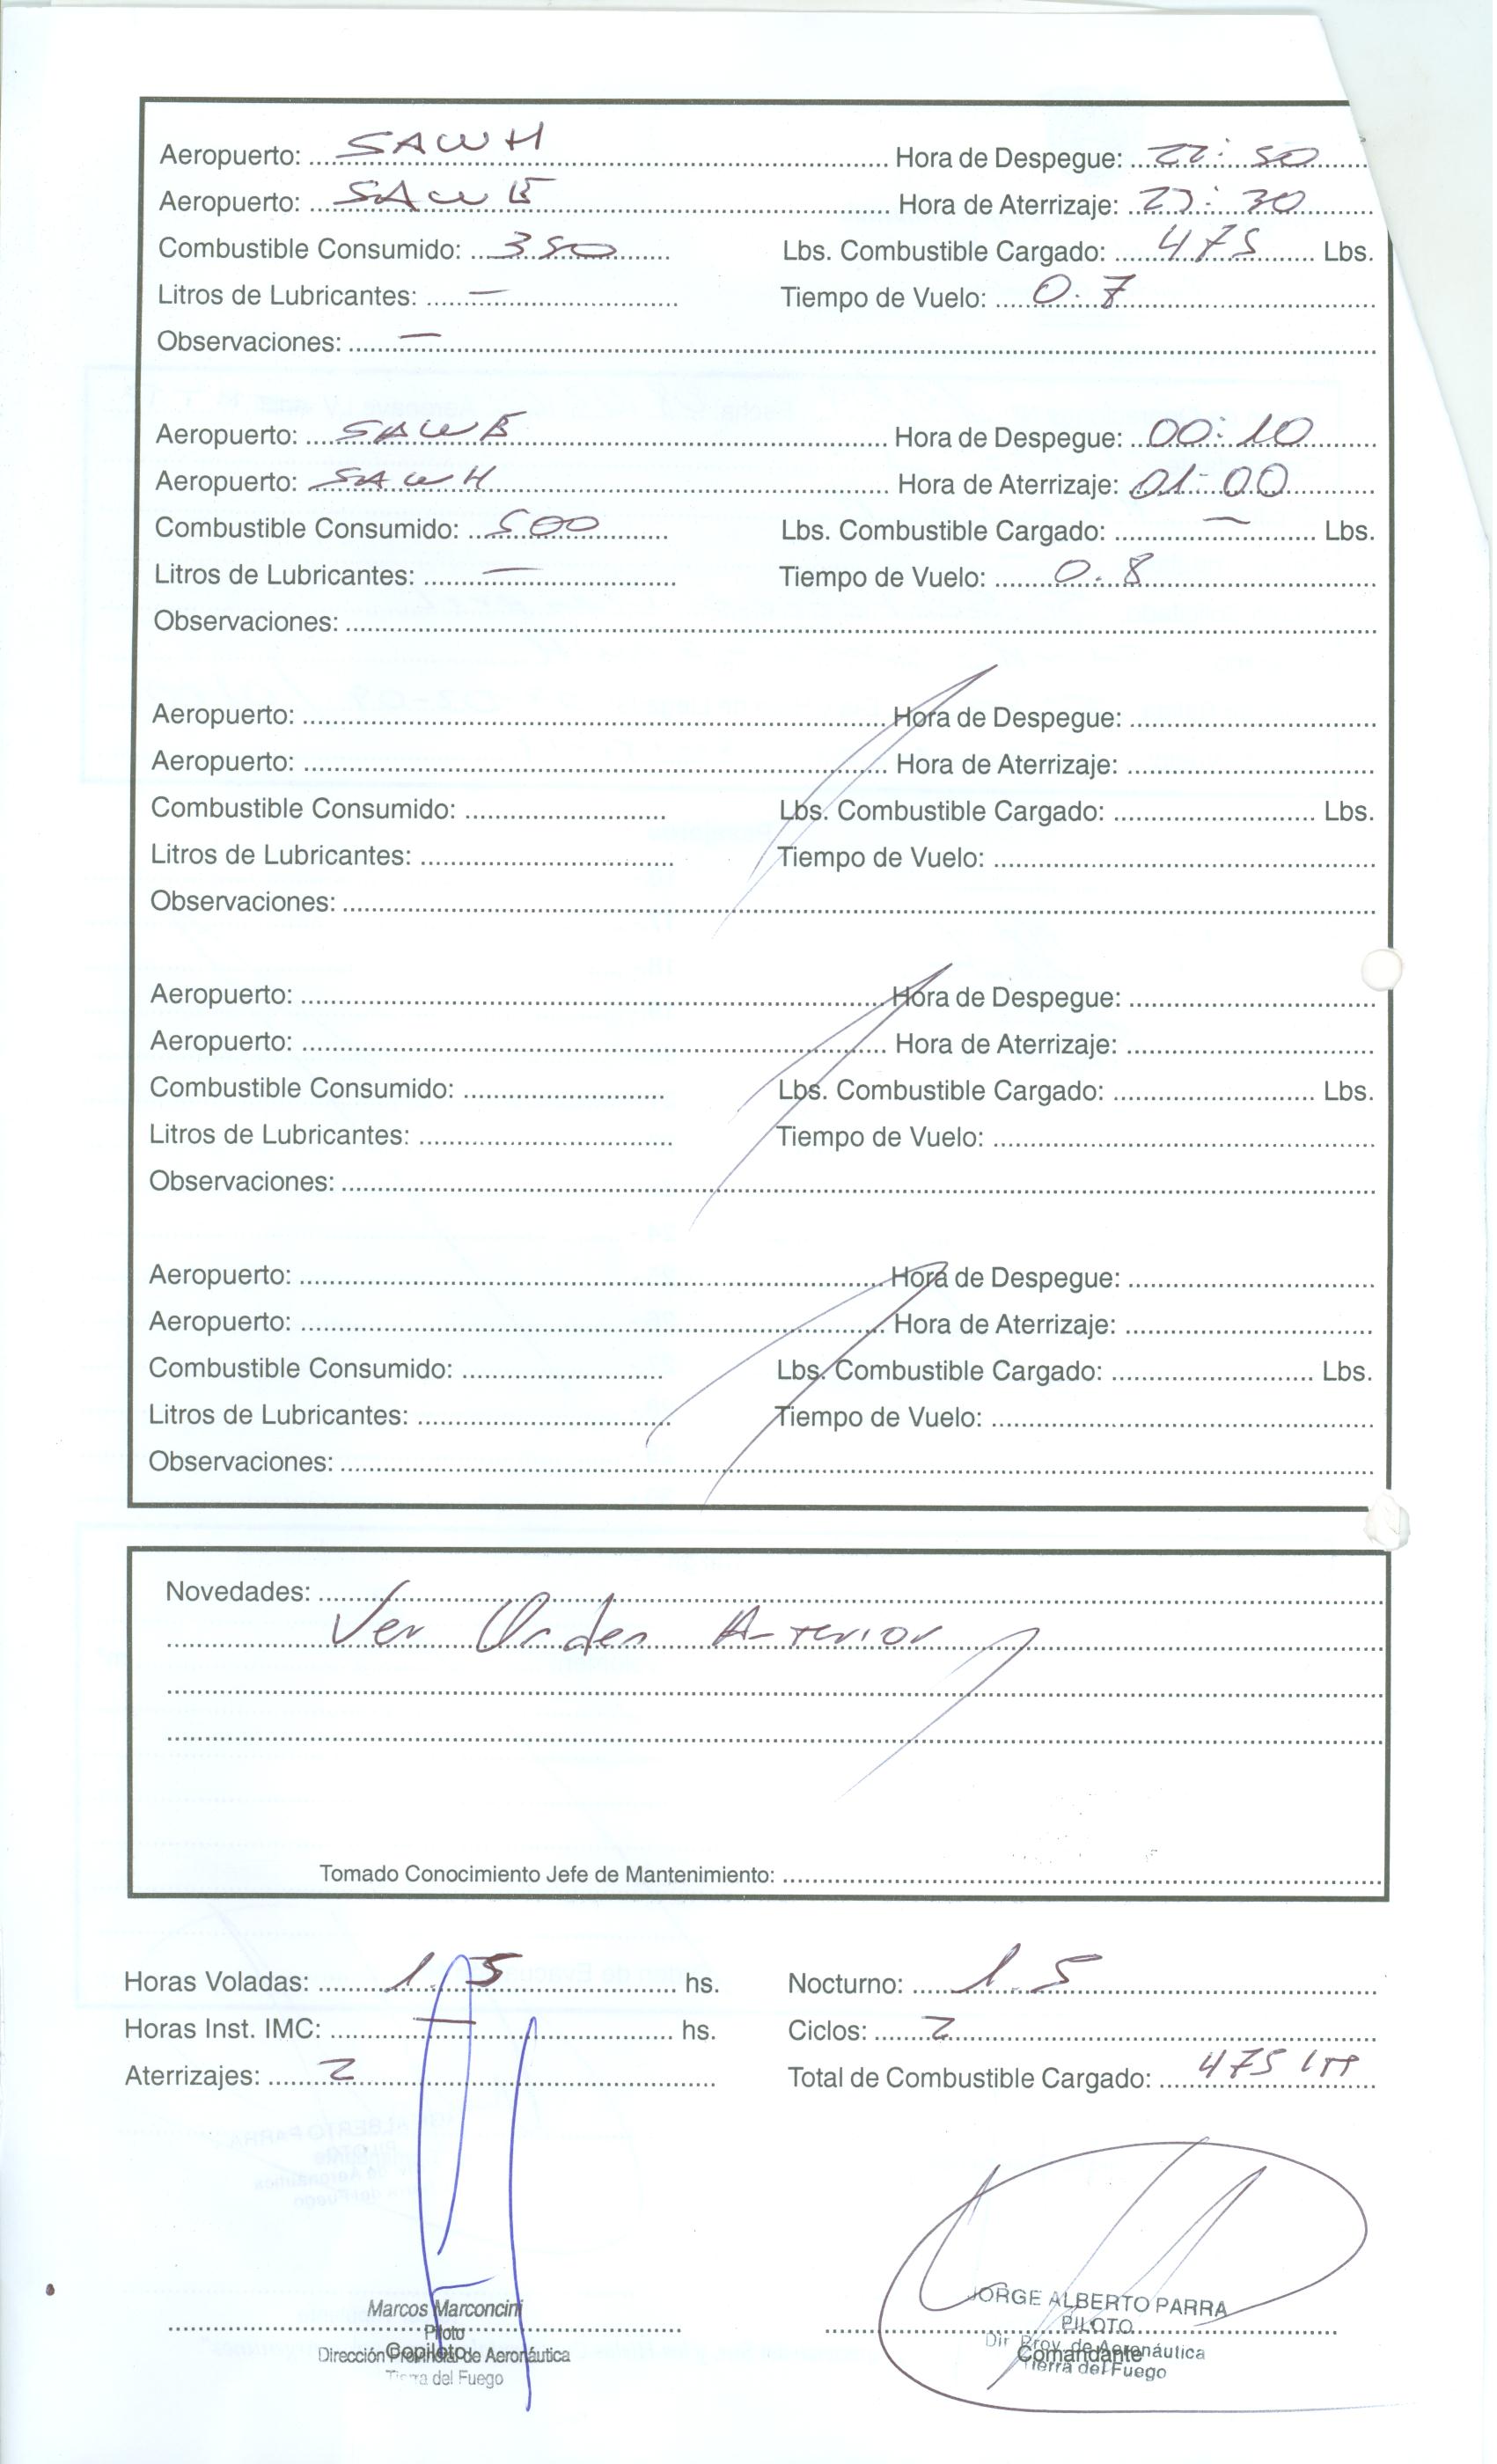 Aeropuerto: SAWH Hora de Despegue: 22:50
Aeropuerto: SAWE Hora de Aterrizaje: 23:30
Combustible Consumido: 350 Lbs. Combustible Cargado: 475 Lbs.
Litros de Lubricantes: — Tiempo de Vuelo: 0.7
Observaciones: —
Aeropuerto: SAWE Hora de Despegue: 00:10
Aeropuerto: SAWH Hora de Aterrizaje: 01:00
Combustible Consumido: 500 Lbs. Combustible Cargado: — Lbs.
Litros de Lubricantes: — Tiempo de Vuelo: 0.8
Observaciones:
Aeropuerto: Hora de Despegue:
Aeropuerto: Hora de Aterrizaje:
Combustible Consumido: Lbs. Combustible Cargado: Lbs.
Litros de Lubricantes: Tiempo de Vuelo:
Observaciones:
Aeropuerto: Hora de Despegue:
Aeropuerto: Hora de Aterrizaje:
Combustible Consumido: Lbs. Combustible Cargado: Lbs.
Litros de Lubricantes: Tiempo de Vuelo:
Observaciones:
Aeropuerto: Hora de Despegue:
Aeropuerto: Hora de Aterrizaje:
Combustible Consumido: Lbs. Combustible Cargado: Lbs.
Litros de Lubricantes: Tiempo de Vuelo:
Observaciones:
Novedades:
Ver Orden Anterior
Tomado Conocimiento Jefe de Mantenimiento:
Horas Voladas: 1.5 hs. Nocturno: 1.5
Horas Inst. IMC: — hs. Ciclos: 2
Aterrizajes: 2 Total de Combustible Cargado: 475 LTS
Marcos Marconcini
Piloto
Copiloto
Dirección Provincial de Aeronáutica
Tierra del Fuego
JORGE ALBERTO PARRA
PILOTO
Dir. Prov. de Aeronáutica
Comandante
Tierra del Fuego